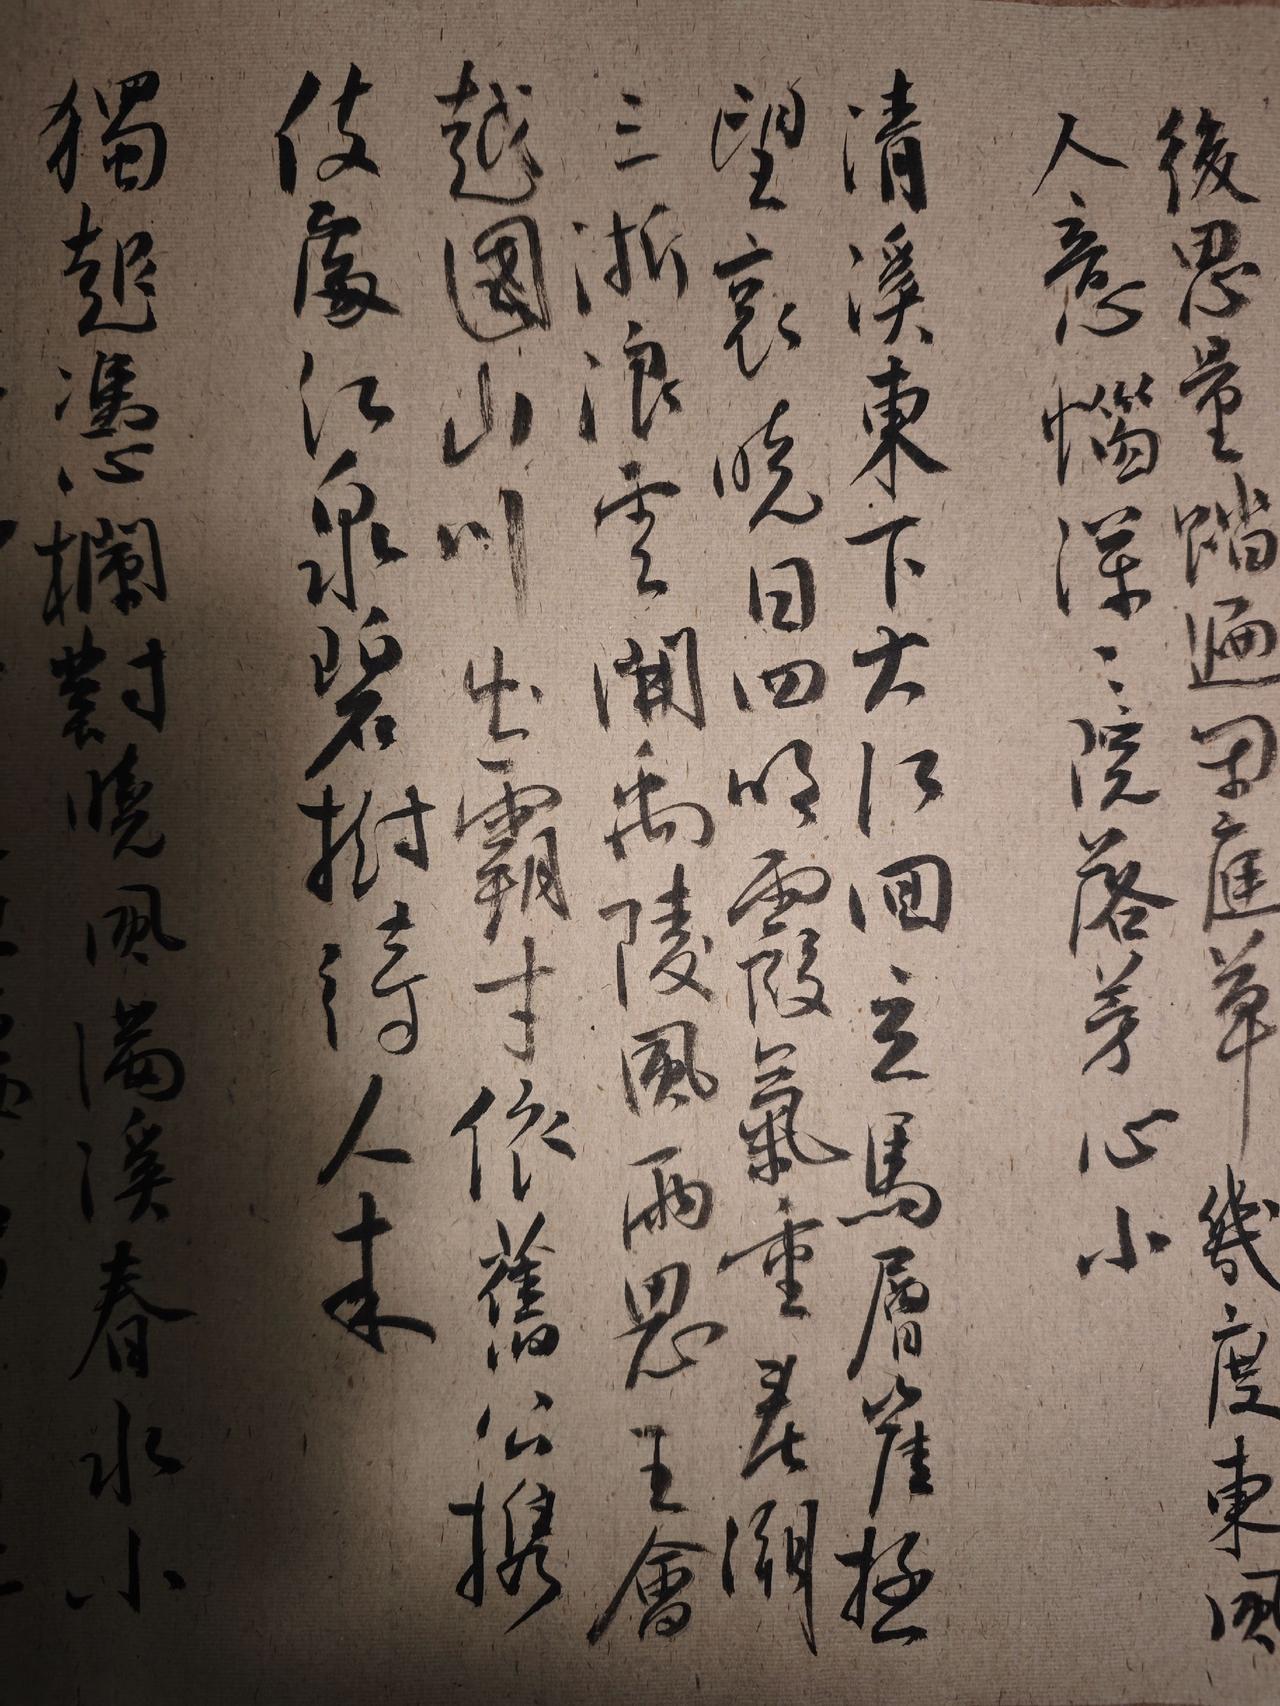 後思量踏遍閑庭草幾度東風
人意惱深〻院落芳心小
清溪東下大江回立馬層崖極
望哀曉日四明霞氣重春潮
三浙浪雲開禹陵風雨思王會
越國山川出霸才依舊公攜
伎處江泉碧樹待人來
獨起憑欄對曉風滿溪春水小